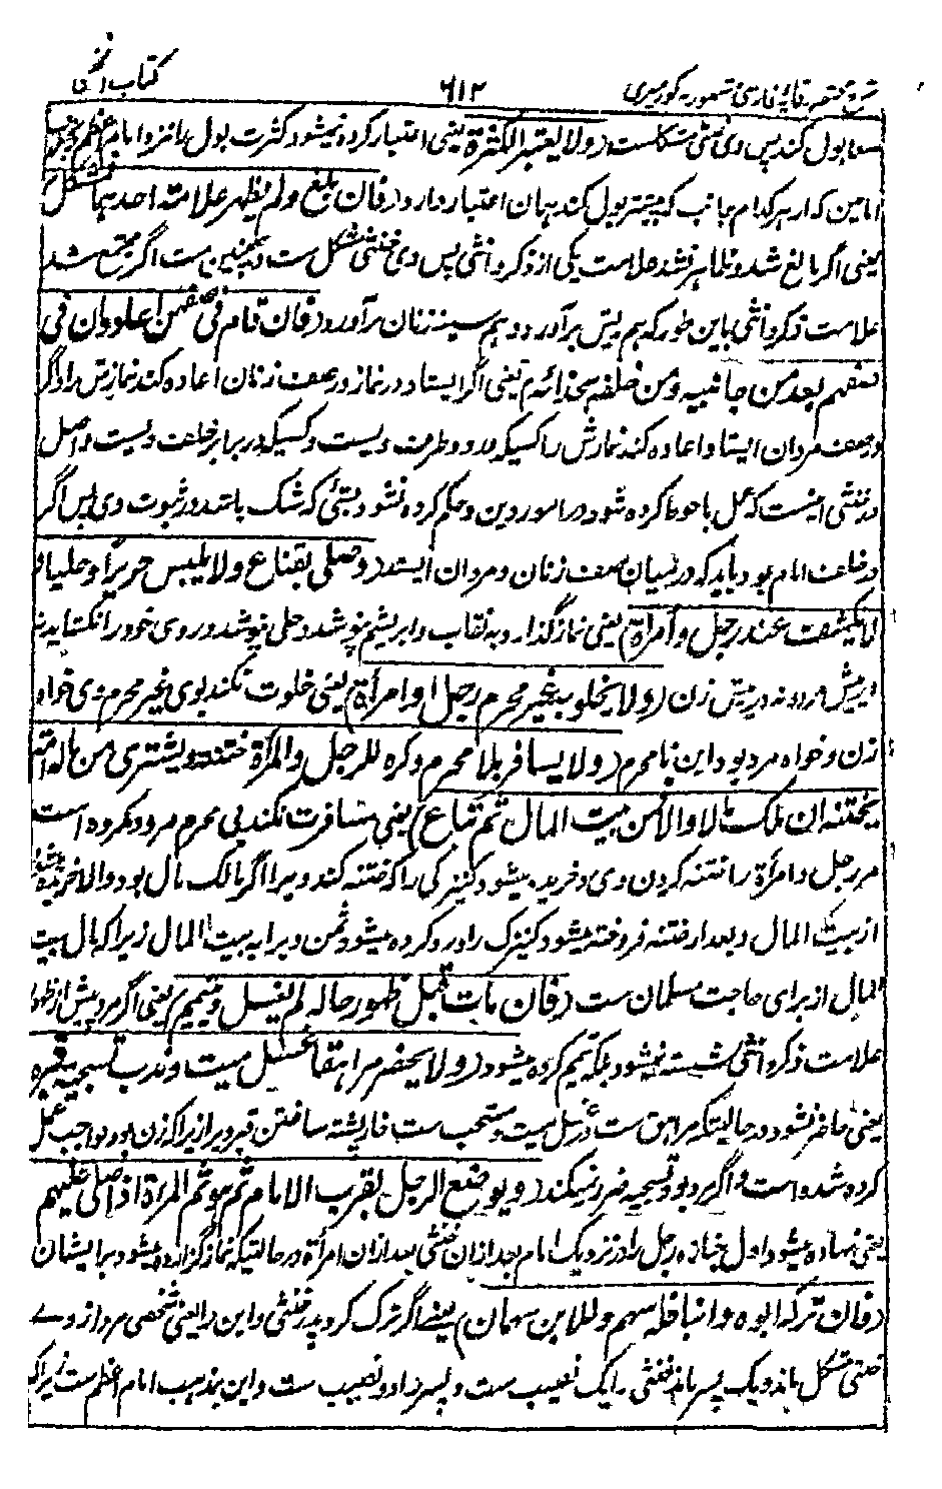 شرح مختصر وقایه فارسی مشهور به کورسیری ٦١٢ کتاب الخنثی
معا بول کند پس وی خنثی مشکلست (ولا یعتبر الکثرة) یعنی اعتبار کرده نمیشود کثرت بول مانزد امام اعظم
امامین که از هر کدام جانب که بیشتر بول کند همان اعتبار دارد (فان بلغ ولم یظهر علامت احدهما فمشکل)
یعنی اگر بالغ شد و ظاهر نشد علامت یکی از ذکر و انثی پس وی خنثی مشکل ست و همچنین ست اگر مجتمع شد
علامت ذکر و انثی باین طور که هم ریش برآورد و هم سینه زنان برآورد (فان قام فی صفهن اعاد وان فی
صفهم یعد من جانبیه ومن خلفه بحذائه) یعنی اگر ایستاد در نماز در صف زنان اعاده کند نمازش را و اگر
در صف مردان ایستاد اعاده کند نمازش را کسیکه در دو طرف ویست و کسیکه در برابر خلف ویست و اصل
در خنثی اینست که عمل باحوط کرده شود در امور دین و حکم کرده نشود بچیزی که شک باشد در ثبوت وی پس اگر
در خلف امام بود باید که در میان صف زنان و مردان ایستد (وصلی بقناع ولا یلبس حریرا وحلیا و
لا یکشف عند رجل وامرأة) یعنی نماز گذارد به نقاب و ابریشم نپوشد و حلی نپوشد و روی خود را نکشاید نه
در پیش مرد و نه در پیش زن (ولا یخلو به غیر محرم رجل او امرأة) یعنی خلوت نکند بوی غیر محرم وی خواه
زن و خواه مرد بود این نامحرم (ولا یسافر بلا محرم وکره للرجل والمرأة ختنه ویشتری من ماله امة
یختنه ان ملک مالا والا فمن بیت المال ثم تباع) یعنی مسافرت نکند بی محرم مرد و مکروه است
مر رجل و امرأة را ختنه کردن وی و خریده میشود کنیزکی را که ختنه کند ویرا اگر مالک مال بود والا خریده شود
از بیت المال و بعد از ختنه فروخته میشود کنیزک را و رد کرده میشود ثمن ویرا به بیت المال زیرا که مال بیت
المال از برای حاجت مسلمان ست (فان مات قبل ظهور حاله لم یغسل ویتیمم) یعنی اگر مرد پیش از ظهور
علامت ذکر و انثی شسته نمیشود بلکه تیمم کرده میشود (ولا یحضر مراهقا غسل میت وندب تسجیة قبره)
یعنی حاضر نشود در حالیتکه مراهق ست در غسل میت و مستحب ست قبر ویرا زیرا که اگر زن بود واجب عمل
کرده شده است و اگر مرد بود تسجیه ضرر نمیکند (ویوضع الرجل بقرب الامام ثم هو ثم المرأة اذا صلی علیهم)
یعنی نهاده میشود اول جنازه رجل را در نزدیک امام بعد از آن خنثی بعد از آن امرأة در حالیتکه نماز گزارده میشود بر ایشان
(فان ترکه ابوه وابنا فله سهم وللابن سهمان) یعنی اگر ترک کرد پدر خنثی و ابن را یعنی شخصی مرد از وی
خنثی مشکل ماند و یک پسر ماند خنثی را یک نصیب ست و پسر را دو نصیب ست و این بمذهب امام اعظم ست زیرا که